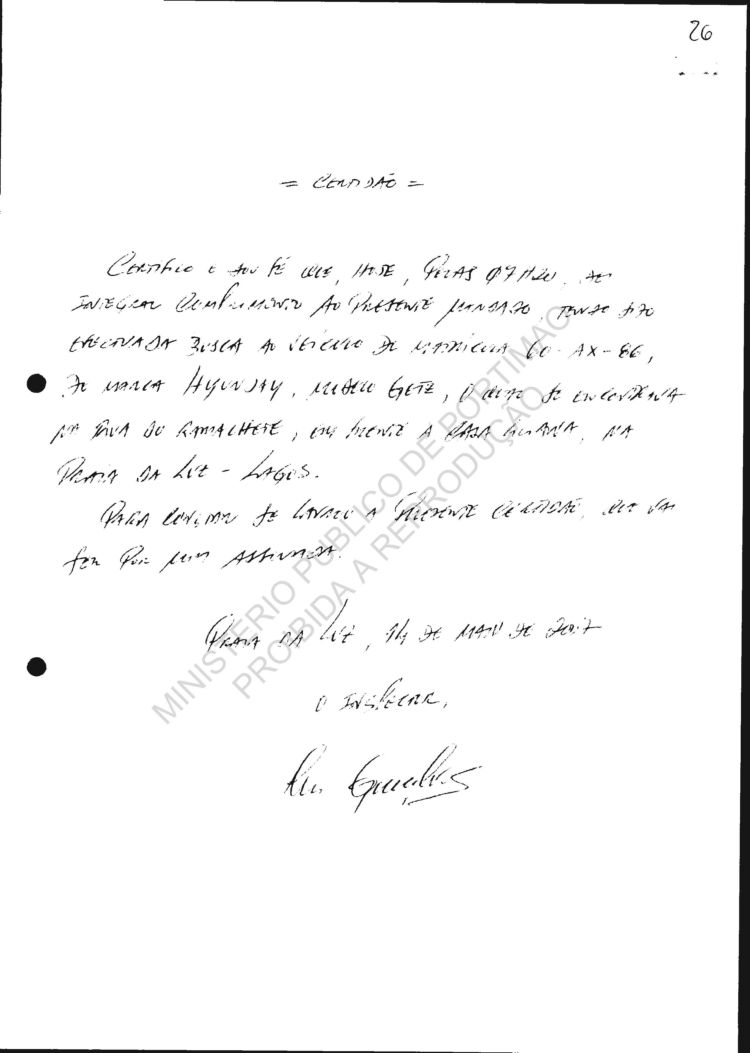 26
= CERTIDÃO =
CERTIFICO E DOU FÉ QUE, HOJE, PELAS 07H20, DEI
INTEGRAL CUMPRIMENTO AO PRESENTE MANDADO, TENDO SIDO
EFECTUADA BUSCA AO VEÍCULO DE MATRÍCULA 60-AX-86,
DE MARCA HYUNDAY, MODELO GETZ, O QUAL SE ENCONTRAVA
NA RUA DO RAMALHETE, EM FRENTE A CASA LILIANA, NA
PRAIA DA LUZ - LAGOS.
PARA CONSTAR SE LAVROU A PRESENTE CERTIDÃO, QUE VAI
SER POR MIM ASSINADA.
PRAIA DA LUZ, 14 DE MAIO DE 2007
O INSPECTOR,
MINISTERIO PUBLICO DE PORTIMAO
PROIBIDA A REPRODUÇÃO